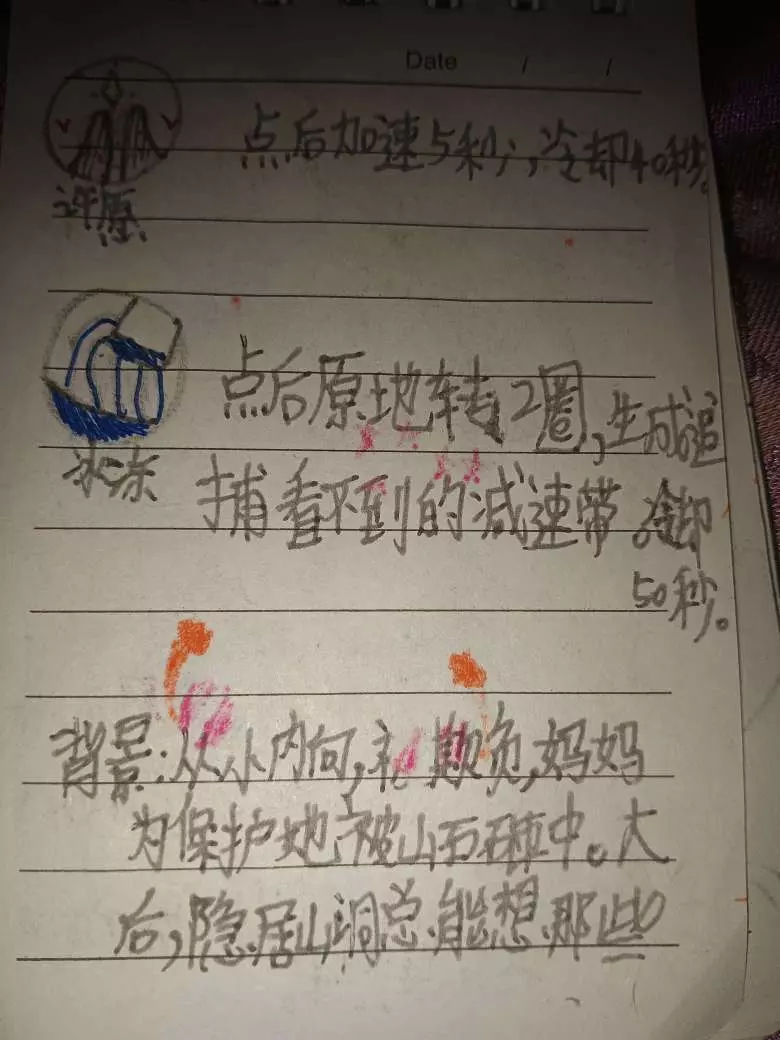 Date / /
点后加速5秒,冷却40秒。
点后原地转2圈,生成追
冰冻
捕看不到的减速带。冷却
50秒。
背景:从小内向,被欺负,妈妈
为保护她被山石砸中。大
后,隐居山洞总能想那些